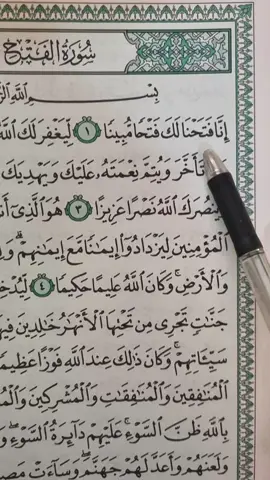 سُورَةُ الْفَتْحِ
بِسْمِ اللَّهِ
إِنَّا فَتَحْنَا لَكَ فَتْحًا مُّبِينًا ١ لِّيَغْفِرَ لَكَ اللَّهُ
تَأَخَّرَ وَيُتِمَّ نِعْمَتَهُ عَلَيْكَ وَيَهْدِيَكَ
وَيَنصُرَكَ اللَّهُ نَصْرًا عَزِيزًا ٣ هُوَ الَّذِي
الْمُؤْمِنِينَ لِيَزْدَادُوا إِيمَانًا مَّعَ إِيمَانِهِمْ
وَالْأَرْضِ وَكَانَ اللَّهُ عَلِيمًا حَكِيمًا ٤ لِّيُدْخِلَ
جَنَّاتٍ تَجْرِي مِن تَحْتِهَا الْأَنْهَارُ خَالِدِينَ فِيهَا
سَيِّئَاتِهِمْ وَكَانَ ذَٰلِكَ عِندَ اللَّهِ فَوْزًا عَظِيمًا
الْمُنَافِقِينَ وَالْمُنَافِقَاتِ وَالْمُشْرِكِينَ
بِاللَّهِ ظَنَّ السَّوْءِ عَلَيْهِمْ دَائِرَةُ السَّوْءِ
وَلَعَنَهُمْ وَأَعَدَّ لَهُمْ جَهَنَّمَ وَسَاءَتْ